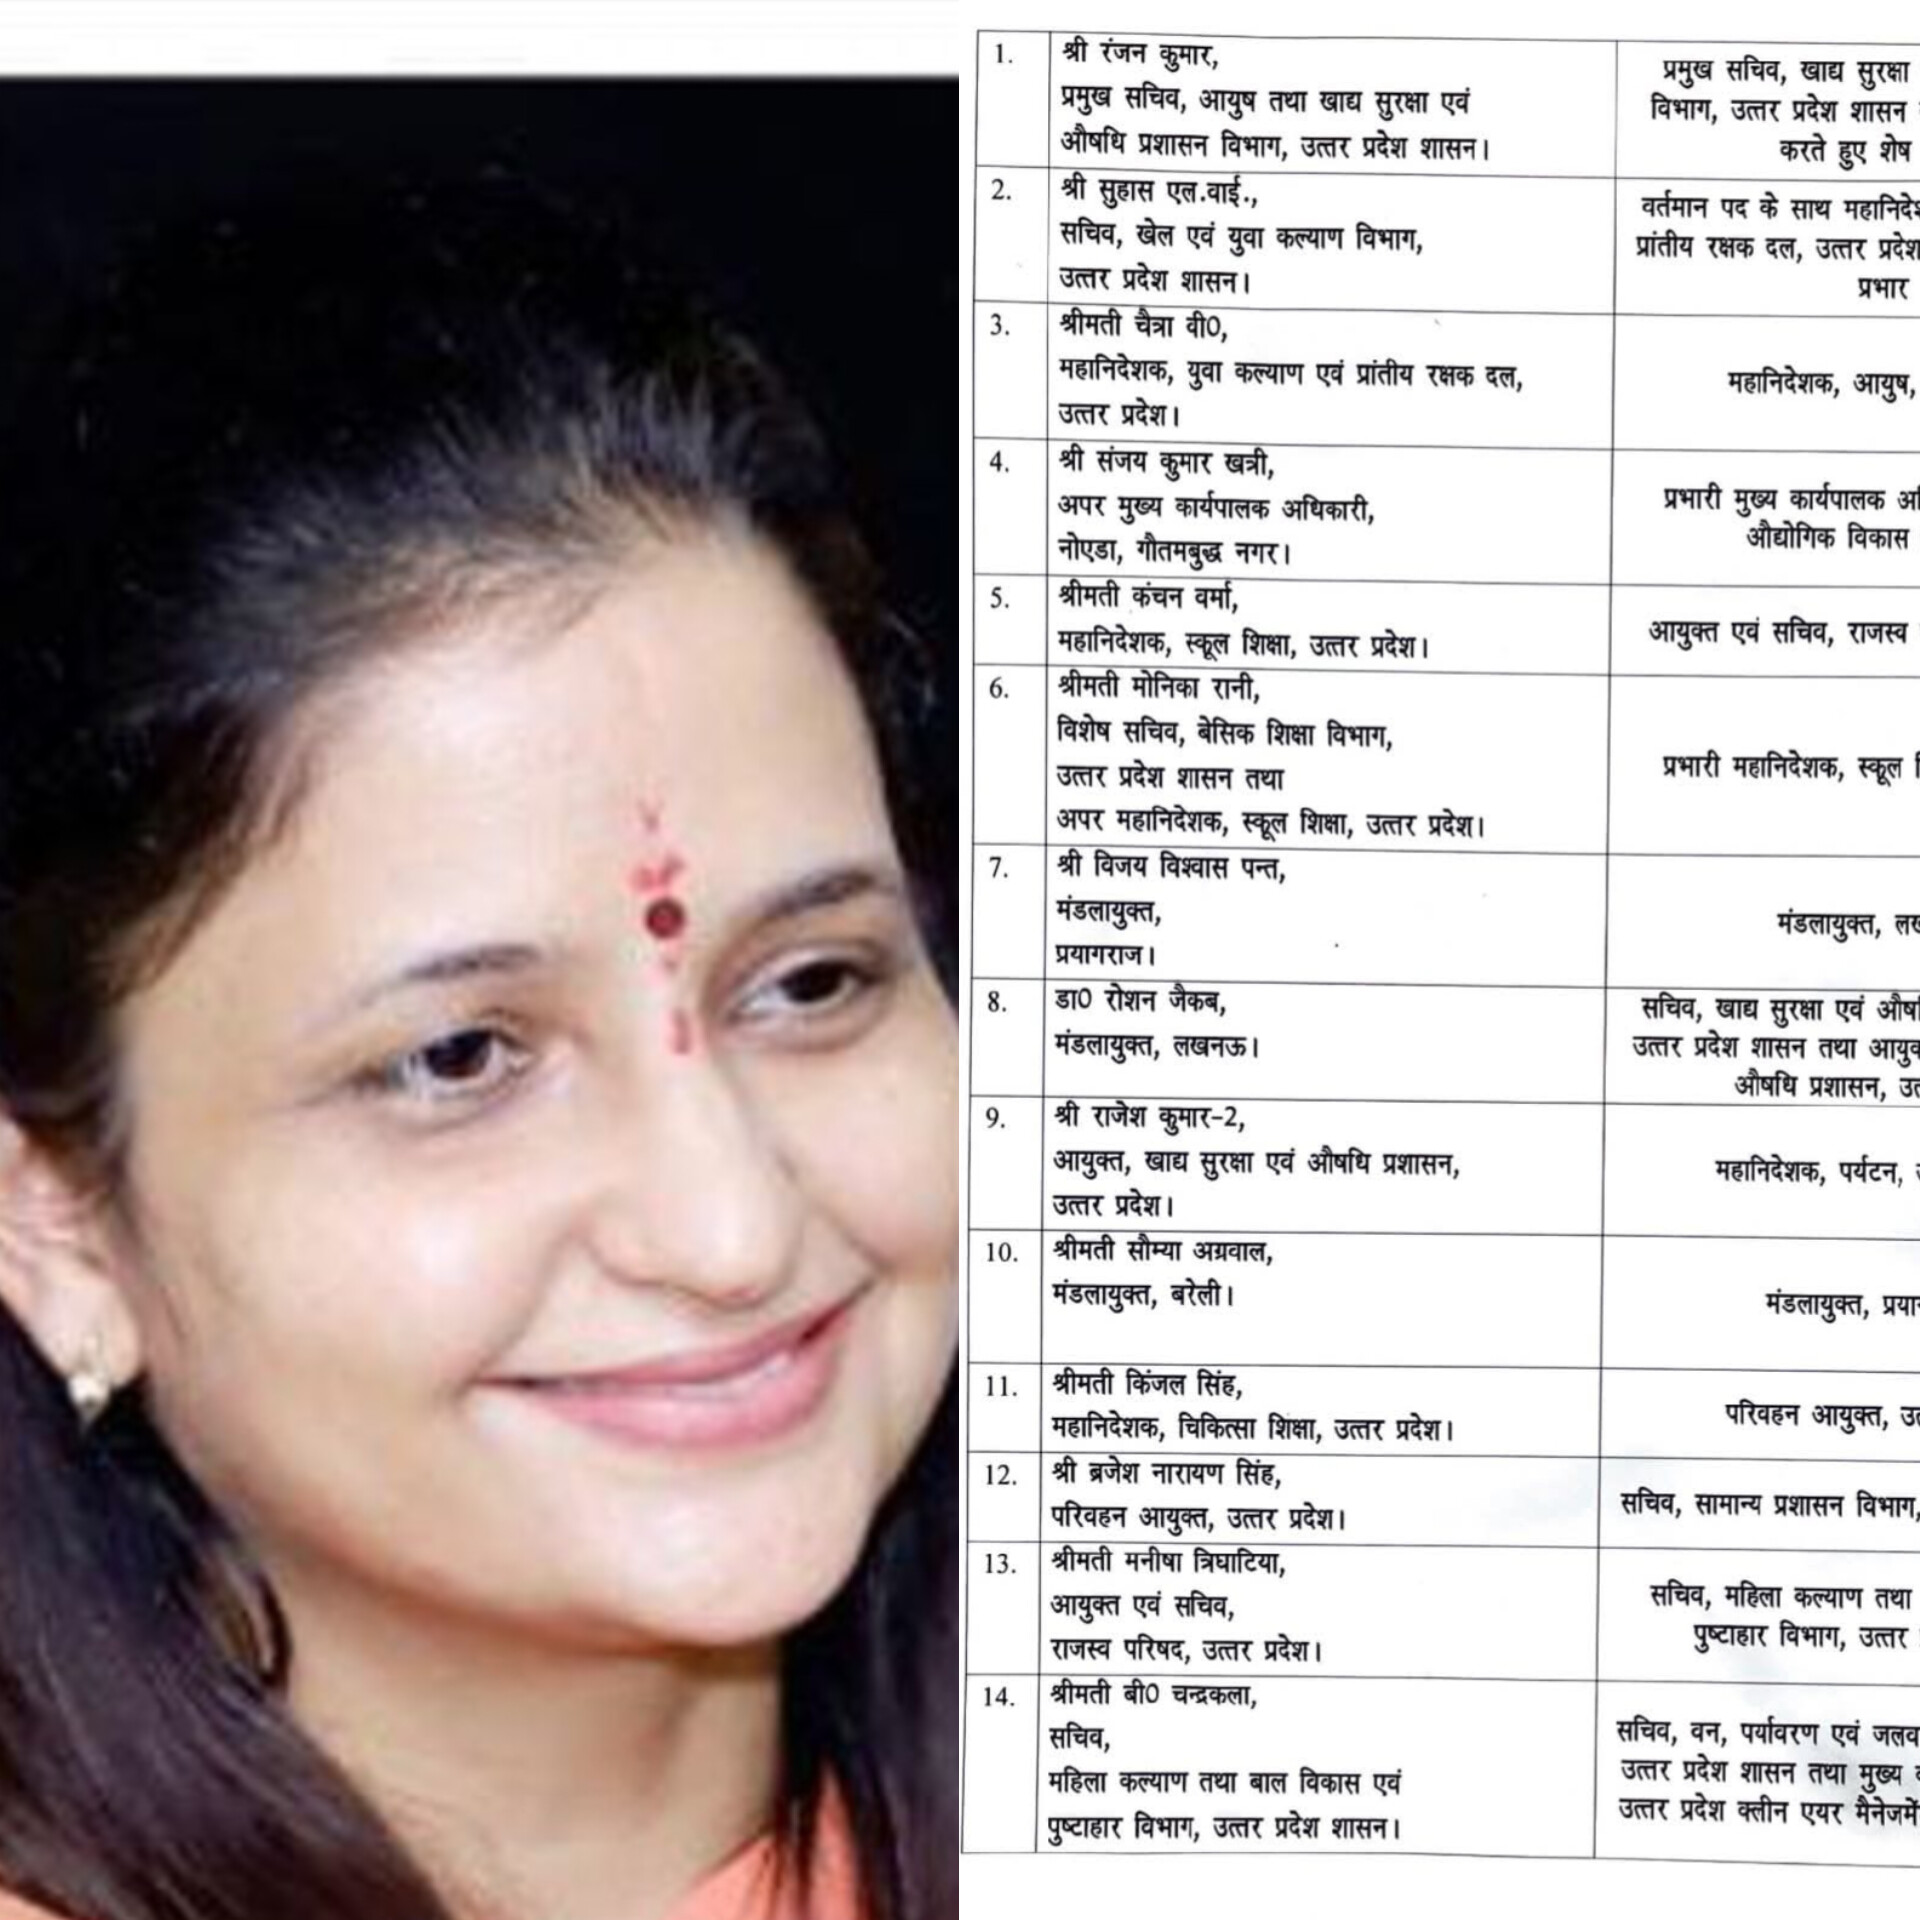 1.
श्री रंजन कुमार,
प्रमुख सचिव, आयुष तथा खाद्य सुरक्षा एवं
औषधि प्रशासन विभाग, उत्तर प्रदेश शासन।
प्रमुख सचिव, खाद्य सुरक्षा
विभाग, उत्तर प्रदेश शासन
करते हुए शेष
2.
श्री सुहास एल.वाई.,
सचिव, खेल एवं युवा कल्याण विभाग,
उत्तर प्रदेश शासन।
वर्तमान पद के साथ
प्रांतीय रक्षक दल, उत्तर प्रदेश
प्रभार
3.
श्रीमती चैत्रा वी0,
महानिदेशक, युवा कल्याण एवं प्रांतीय रक्षक दल,
उत्तर प्रदेश।
महानिदेशक, आयुष,
4.
श्री संजय कुमार खत्री,
अपर मुख्य कार्यपालक अधिकारी,
नोएडा, गौतमबुद्ध नगर।
प्रभारी मुख्य कार्यपालक
औद्योगिक विकास
5.
श्रीमती कंचन वर्मा,
महानिदेशक, स्कूल शिक्षा, उत्तर प्रदेश।
आयुक्त एवं सचिव, राजस्व
6.
श्रीमती मोनिका रानी,
विशेष सचिव, बेसिक शिक्षा विभाग,
उत्तर प्रदेश शासन तथा
अपर महानिदेशक, स्कूल शिक्षा, उत्तर प्रदेश।
प्रभारी महानिदेशक, स्कूल
7.
श्री विजय विश्वास पन्त,
मंडलायुक्त,
प्रयागराज।
मंडलायुक्त,
8.
डा0 रोशन जैकब,
मंडलायुक्त, लखनऊ।
सचिव, खाद्य सुरक्षा एवं
उत्तर प्रदेश शासन तथा
औषधि प्रशासन,
9.
श्री राजेश कुमार-2,
आयुक्त, खाद्य सुरक्षा एवं औषधि प्रशासन,
उत्तर प्रदेश।
महानिदेशक, पर्यटन,
10.
श्रीमती सौम्या अग्रवाल,
मंडलायुक्त, बरेली।
मंडलायुक्त,
11.
श्रीमती किंजल सिंह,
महानिदेशक, चिकित्सा शिक्षा, उत्तर प्रदेश।
परिवहन आयुक्त,
12.
श्री ब्रजेश नारायण सिंह,
परिवहन आयुक्त, उत्तर प्रदेश।
सचिव, सामान्य प्रशासन विभाग,
13.
श्रीमती मनीषा त्रिघाटिया,
आयुक्त एवं सचिव,
राजस्व परिषद, उत्तर प्रदेश।
सचिव, महिला कल्याण तथा
पुष्टाहार विभाग, उत्तर
14.
श्रीमती बी0 चन्द्रकला,
सचिव,
महिला कल्याण तथा बाल विकास एवं
पुष्टाहार विभाग, उत्तर प्रदेश शासन।
सचिव, वन, पर्यावरण एवं
उत्तर प्रदेश शासन तथा मुख्य
उत्तर प्रदेश क्लीन एयर